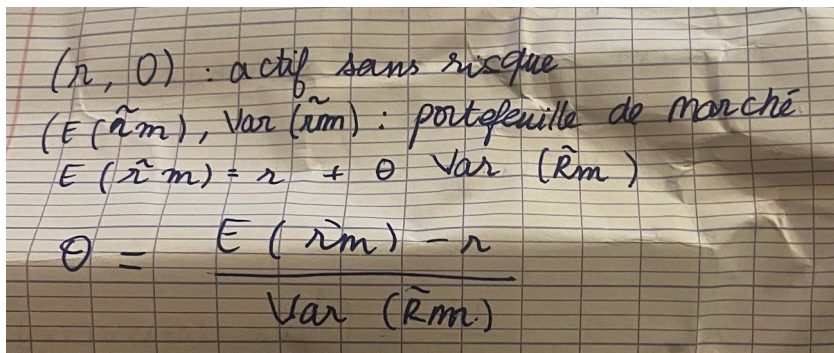 (r, 0) : actif sans risque
(E(r̃m), Var(r̃m) : portefeuille de marché
E(r̃m) = r + θ Var (R̃m)
θ = E(r̃m) - r / Var (R̃m)